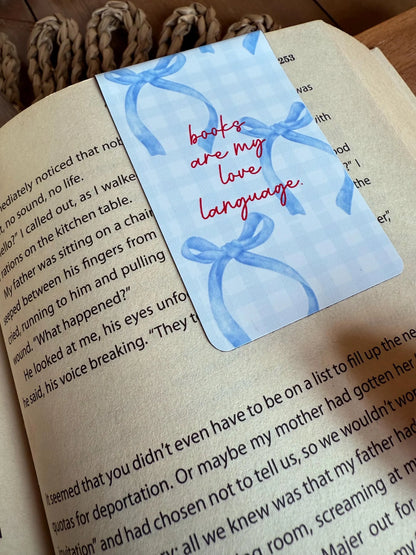 253
books
are my
love
language.
mediately noticed that not
t, no sound, no life.
ello?" I called out, as I walke
rations on the kitchen table.
My father was sitting on a chair
seeped between his fingers from
cried, running to him and pulling
wound. "What happened?"
He looked at me, his eyes unfo
he said, his voice breaking. "They t
was
with
?" I
the
It seemed that you didn't even have to be on a list to fill up the ne
quotas for deportation. Or maybe my mother had gotten her
invitation" and had chosen not to tell us, so we wouldn't wor
ry: all we knew was that my father had
room, screaming at m
Majer out for